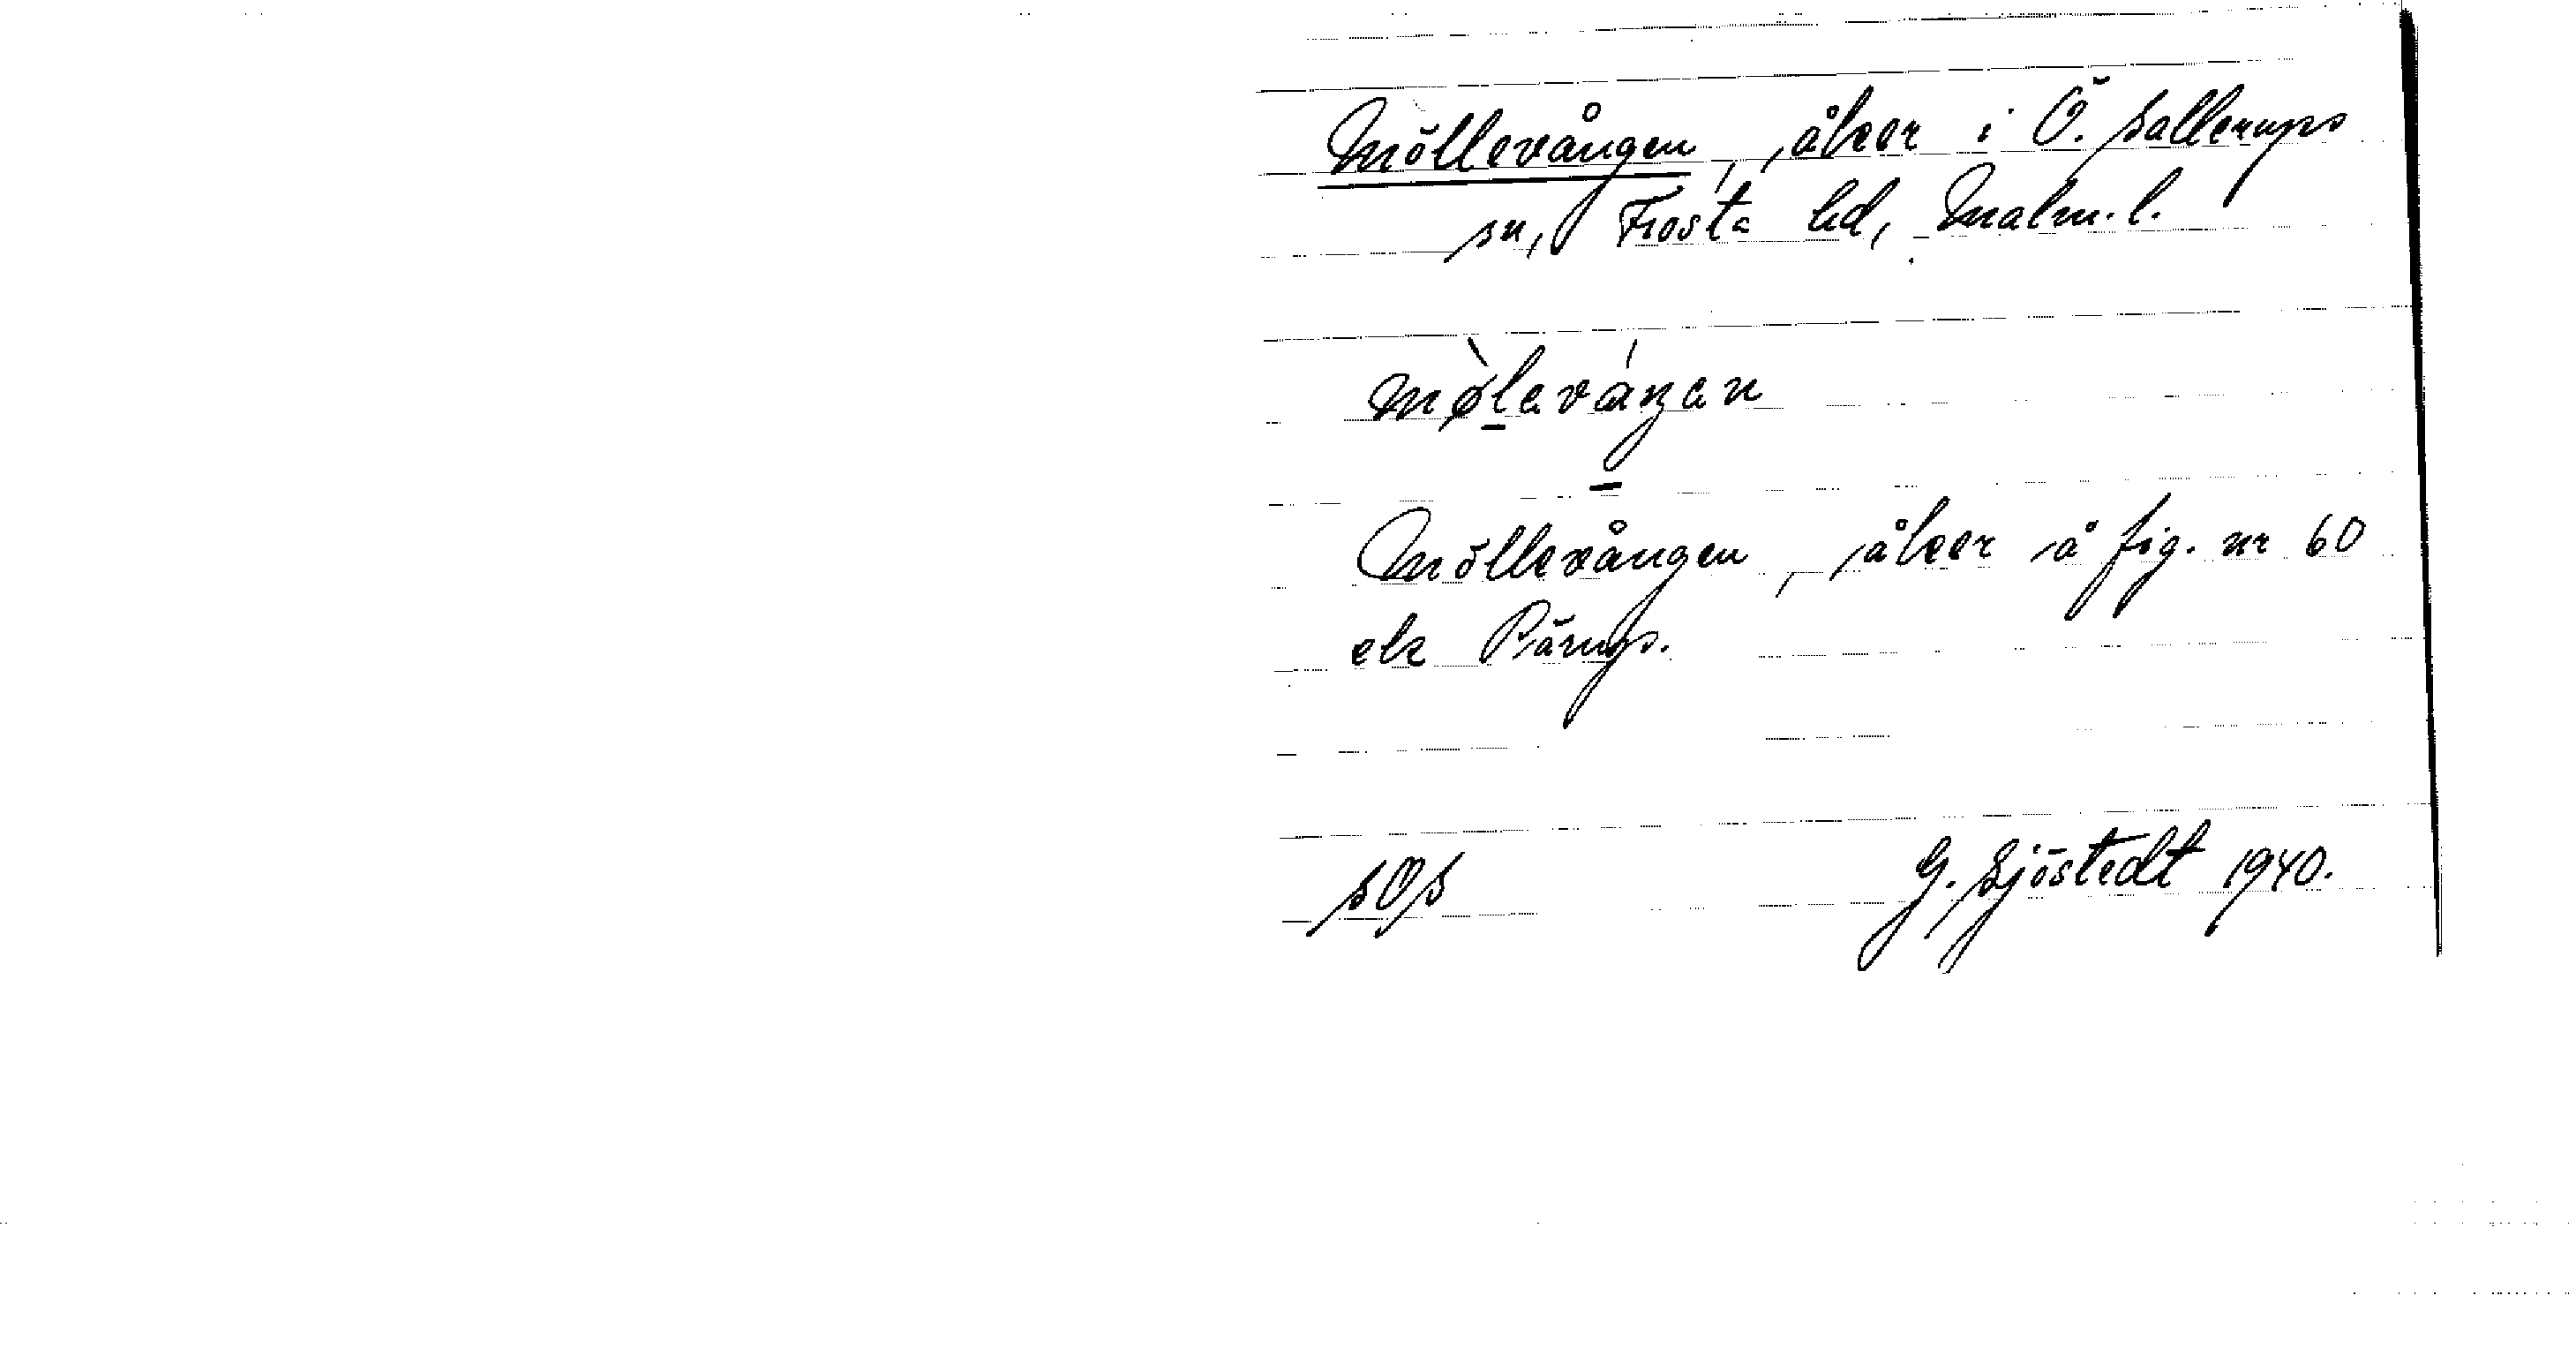 Möllevången, åker i Ö. Sallerups
sn, Frosta hd, Malm. l.
mø̀leváŋen
Möllevången, åker å fig. nr 60
ek Pärups.
SOS G. Sjöstedt 1940.